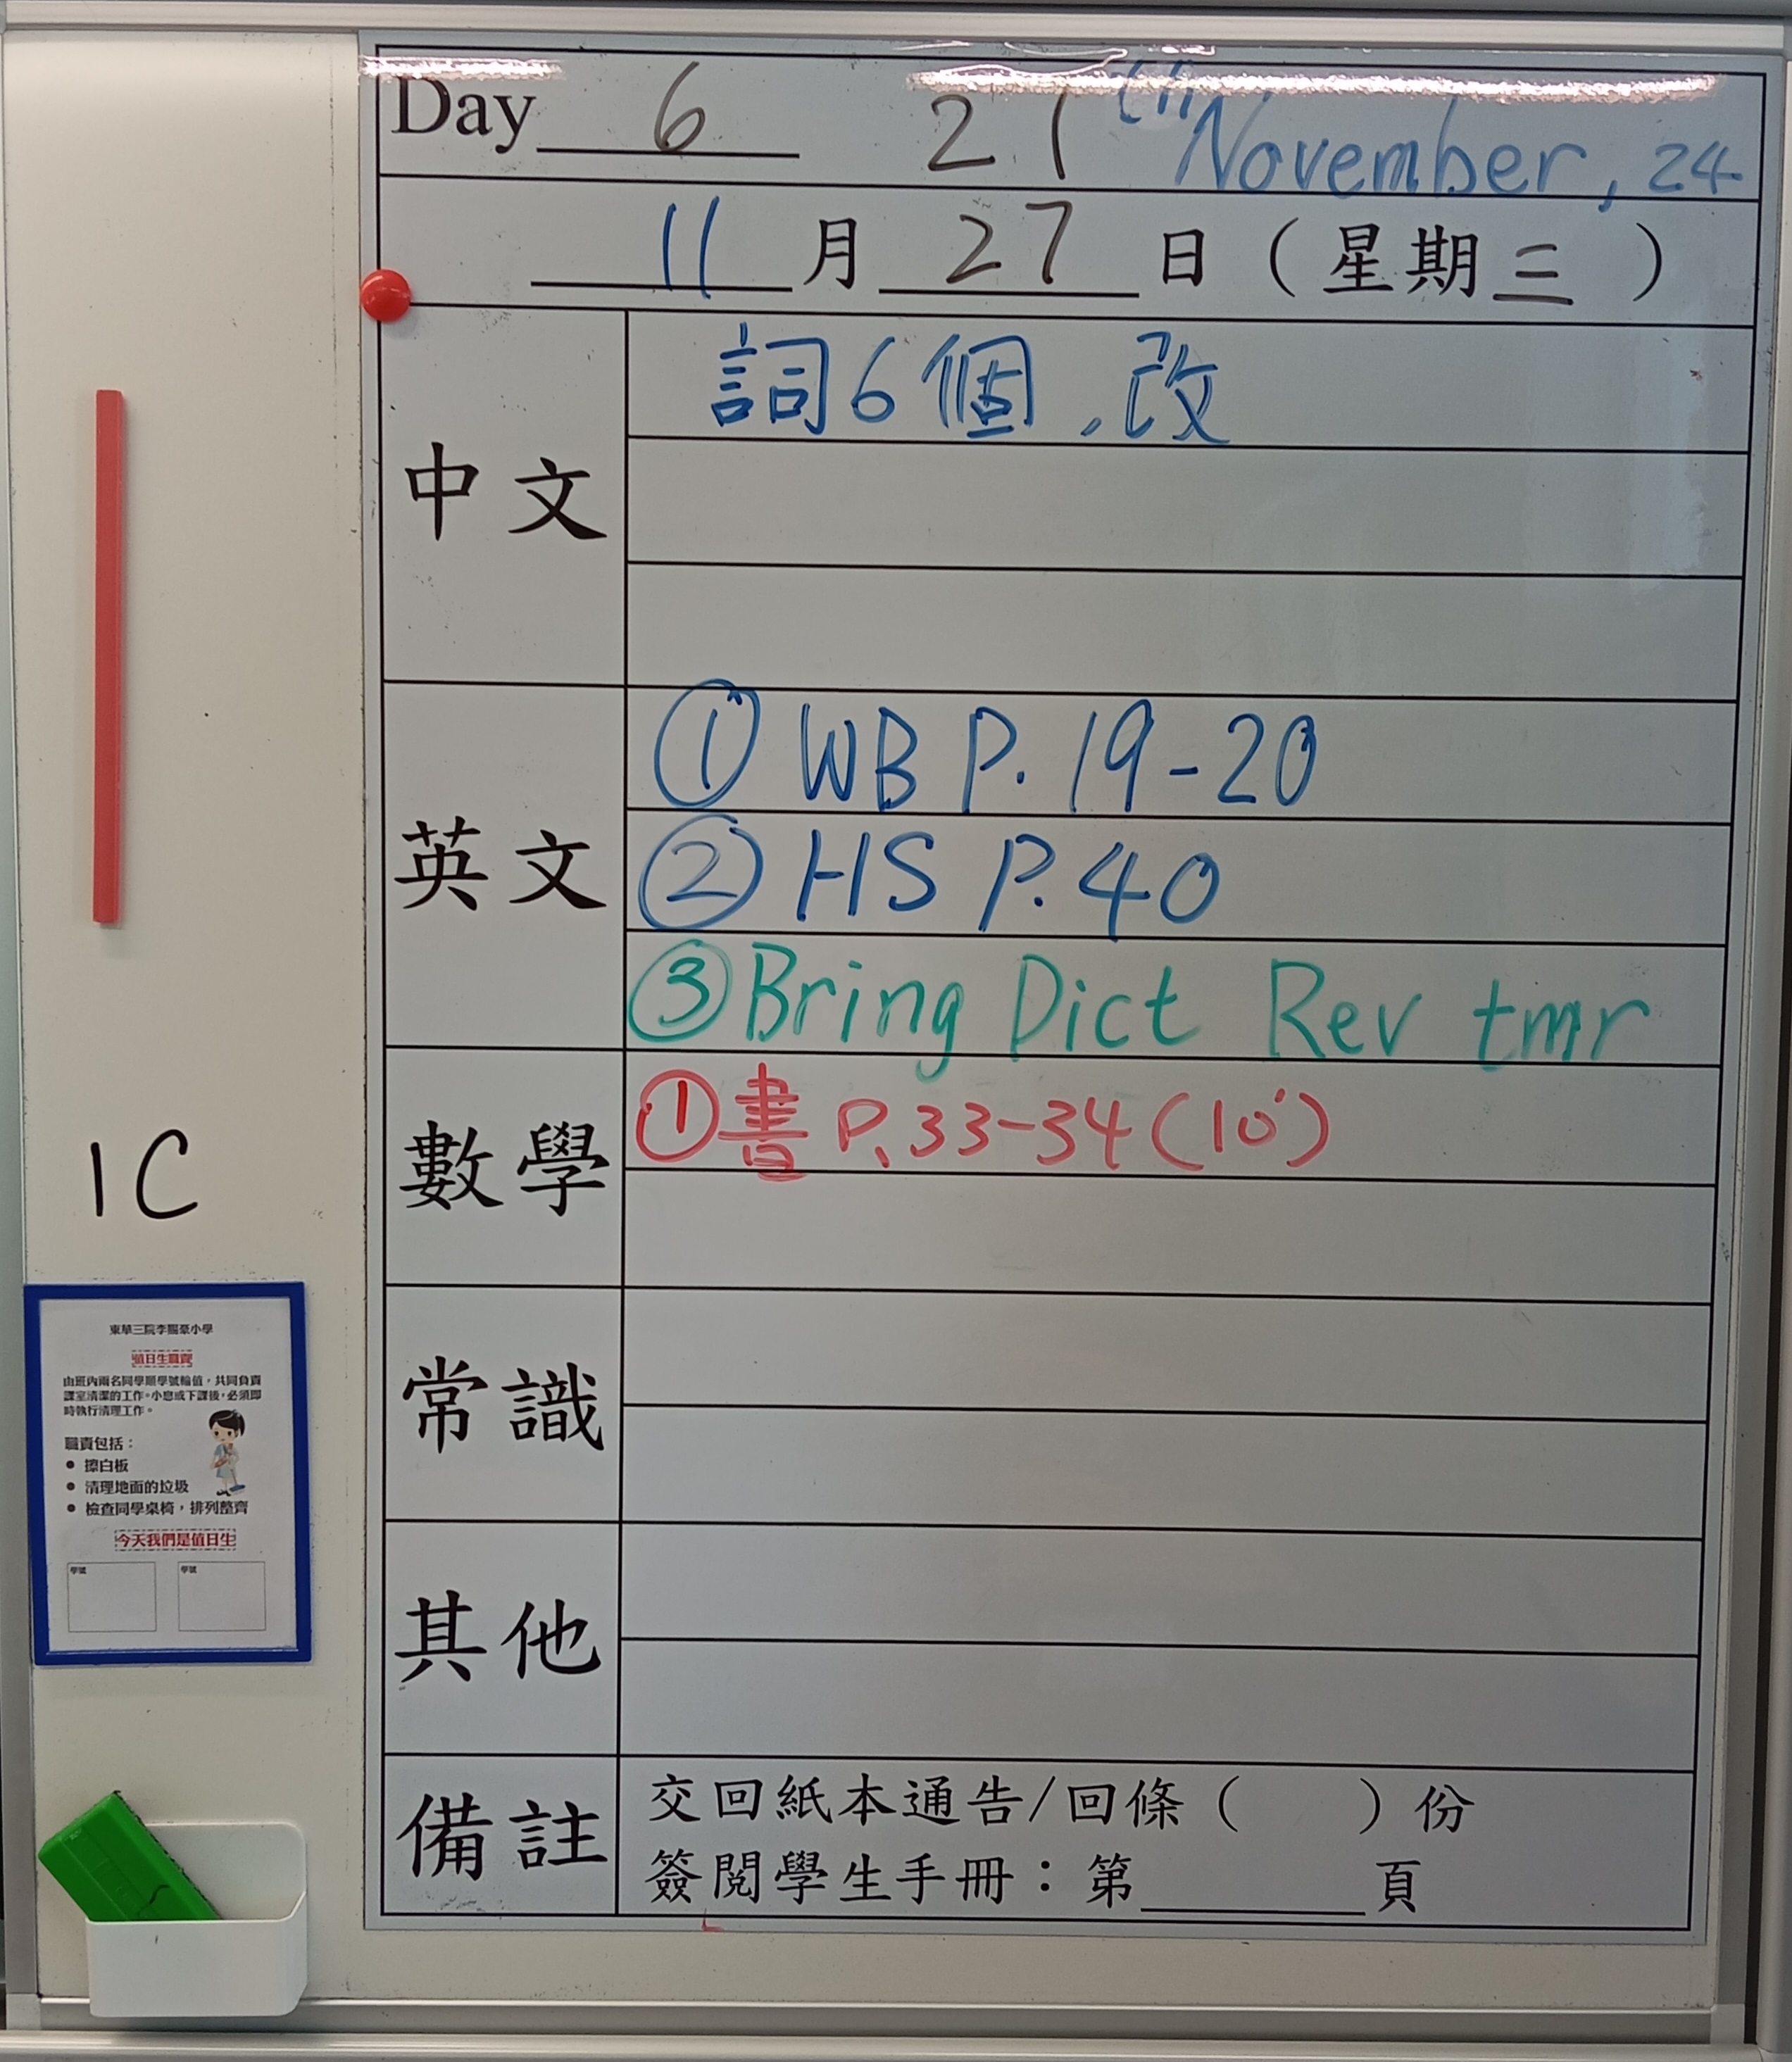 Day 6 27th November, 24
11 月 27 日 (星期三)
中文
詞6個,改
英文
① WB P. 19-20
② HS P. 40
③ Bring Dict Rev tmr
數學
① 書 P. 33-34 (10')
常識
其他
備註
交回紙本通告/回條( )份
簽閱學生手冊:第____頁
1C
東華三院李賜豪小學
值日生職責
由班內兩名同學順學號輪值,共同負責
課室清潔的工作。小息或下課後,必須即
時執行清理工作。
職責包括:
• 擦白板
• 清理地面的垃圾
• 檢查同學桌椅,排列整齊
今天我們是值日生
學號 學號